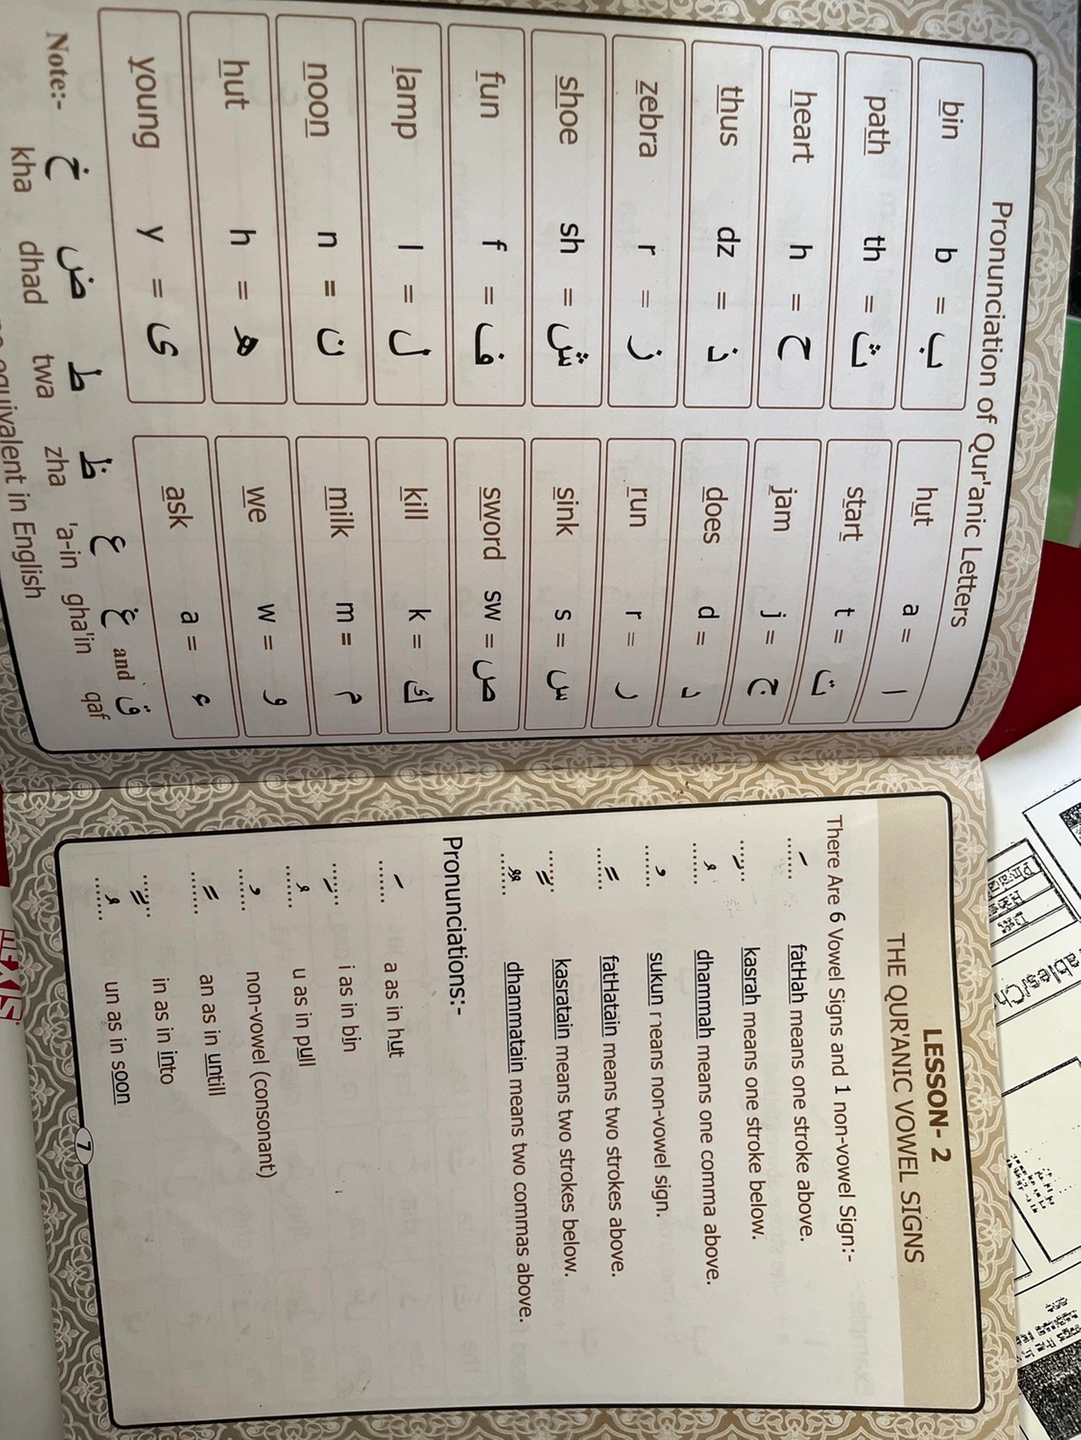 Pronunciation of Qur'anic Letters
bin b = ب
hut a = ا
path th = ث
start t = ت
heart h = ح
jam j = ج
thus dz = ذ
does d = د
zebra r = ز
run r = ر
shoe sh = ش
sink s = س
fun f = ف
sword sw = ص
lamp l = ل
kill k = ك
noon n = ن
milk m = م
hut h = ه
we w = و
young y = ى
ask a = ء
Note:- خ ض ط ظ ع غ and ق
kha dhad twa zha 'a-in gha'in qaf
equivalent in English
LESSON- 2
THE QUR'ANIC VOWEL SIGNS
There Are 6 Vowel Signs and 1 non-vowel Sign:-
fatHah means one stroke above.
kasrah means one stroke below.
dhammah means one comma above.
sukun means non-vowel sign.
fatHatain means two strokes above.
kasratain means two strokes below.
dhammatain means two commas above.
Pronunciations:-
a as in hut
i as in bin
u as in pull
non-vowel (consonant)
an as in untill
in as in into
un as in soon
7
ables/Ch